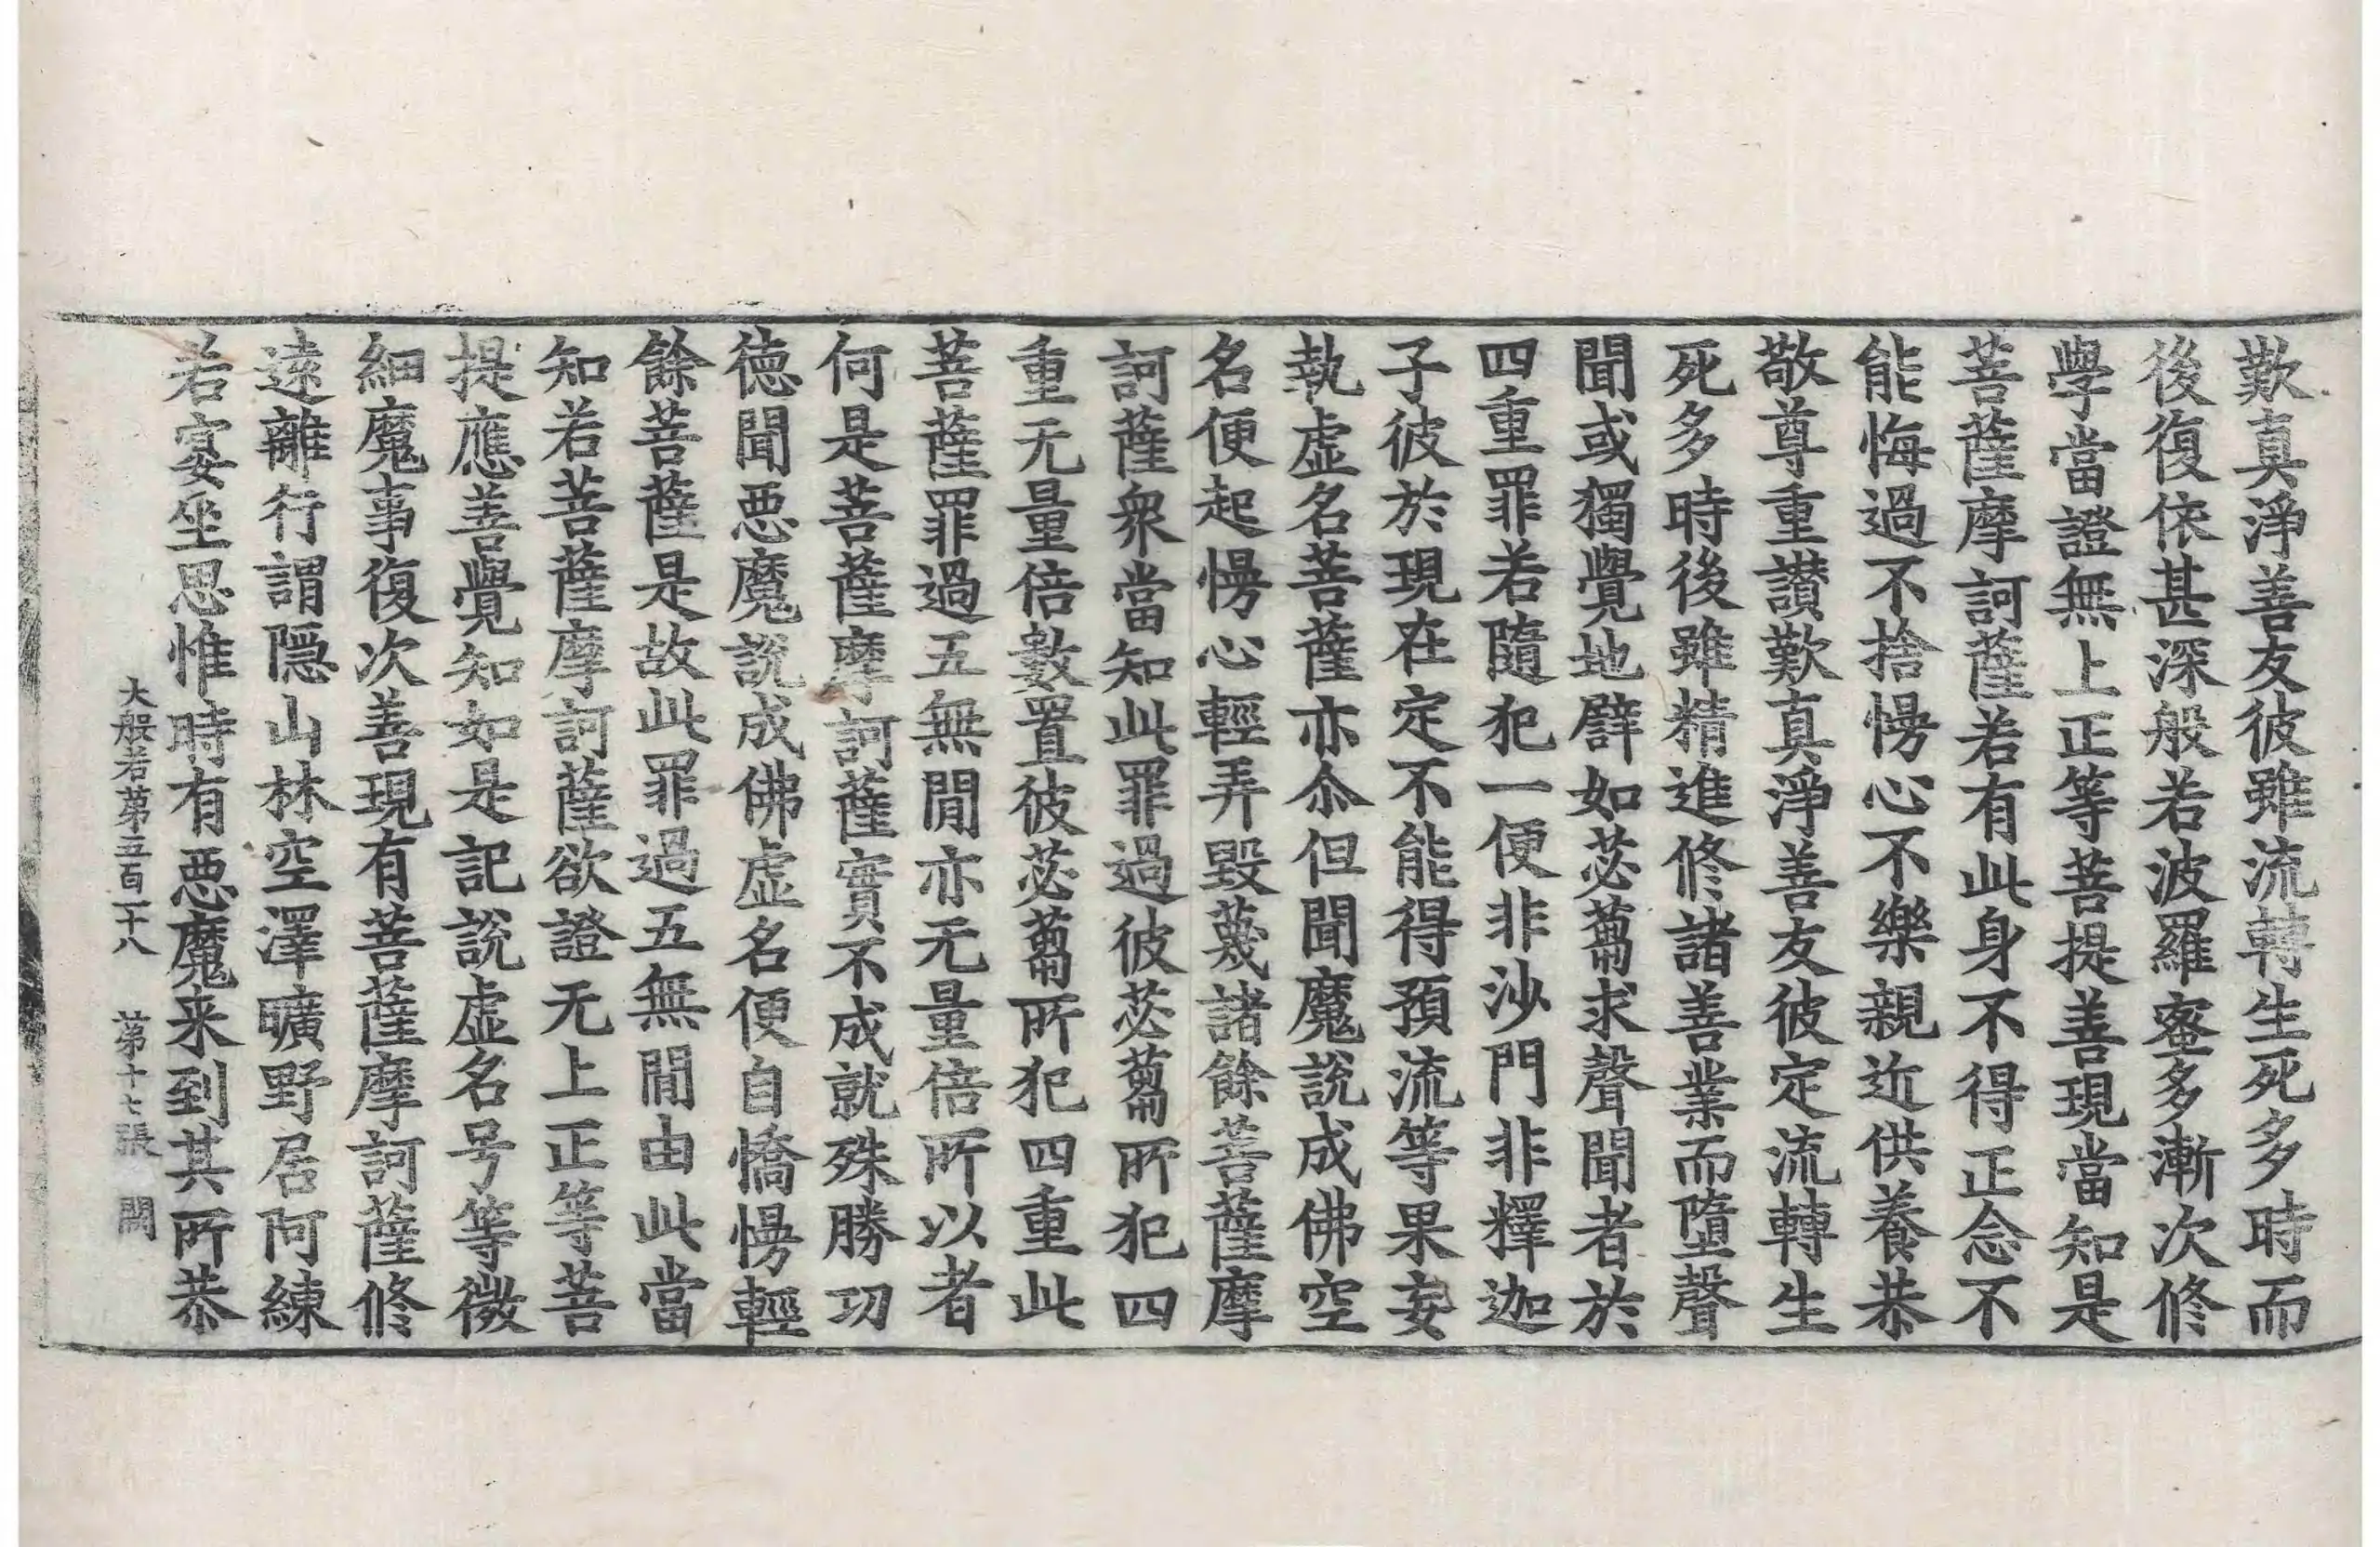 歎真淨善友彼雖流轉生死多時而
後復依甚深般若波羅蜜多漸次修
學當證無上正等菩提善現當知是
菩薩摩訶薩若有此身不得正念不
能悔過不捨慢心不樂親近供養恭
敬尊重讃歎真淨善友彼定流轉生
死多時後雖精進修諸善業而墮聲
聞或獨覺地譬如苾蒭求聲聞者於
四重罪若隨犯一便非沙門非釋迦
子彼於現在定不能得預流等果妄
執虛名菩薩亦尒但聞魔說成佛空
名便起慢心輕弄毀蔑諸餘菩薩摩
訶薩衆當知此罪過彼苾蒭所犯四
重无量倍數置彼苾蒭所犯四重此
菩薩罪過五無閒亦无量倍所以者
何是菩薩摩訶薩實不成就殊勝功
德聞惡魔說成佛虛名便自憍慢輕
餘菩薩是故此罪過五無閒由此當
知若菩薩摩訶薩欲證无上正等菩
提應善覺知如是記說虛名号等微
細魔事復次善現有菩薩摩訶薩修
遠離行謂隱山林空澤曠野居阿練
若宴坐思惟時有惡魔来到其所恭
大般若第五百二十八 第十七張 闕